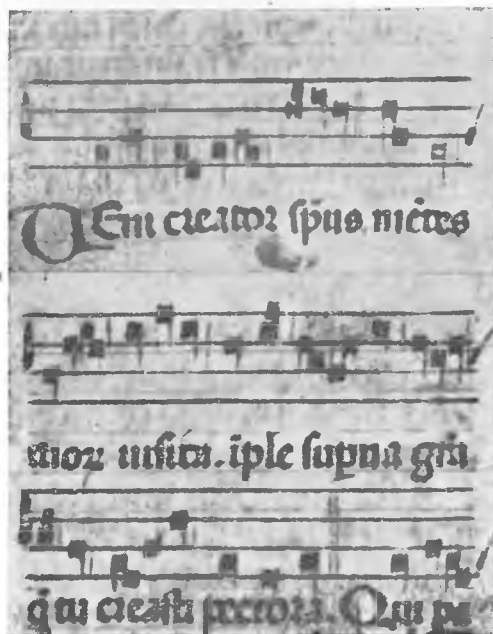 VEni creator sp̃us mẽtes
tuoꝝ visita . ĩple sup̃na gr̃a
q̃ tu creasti pectora . Qui pa